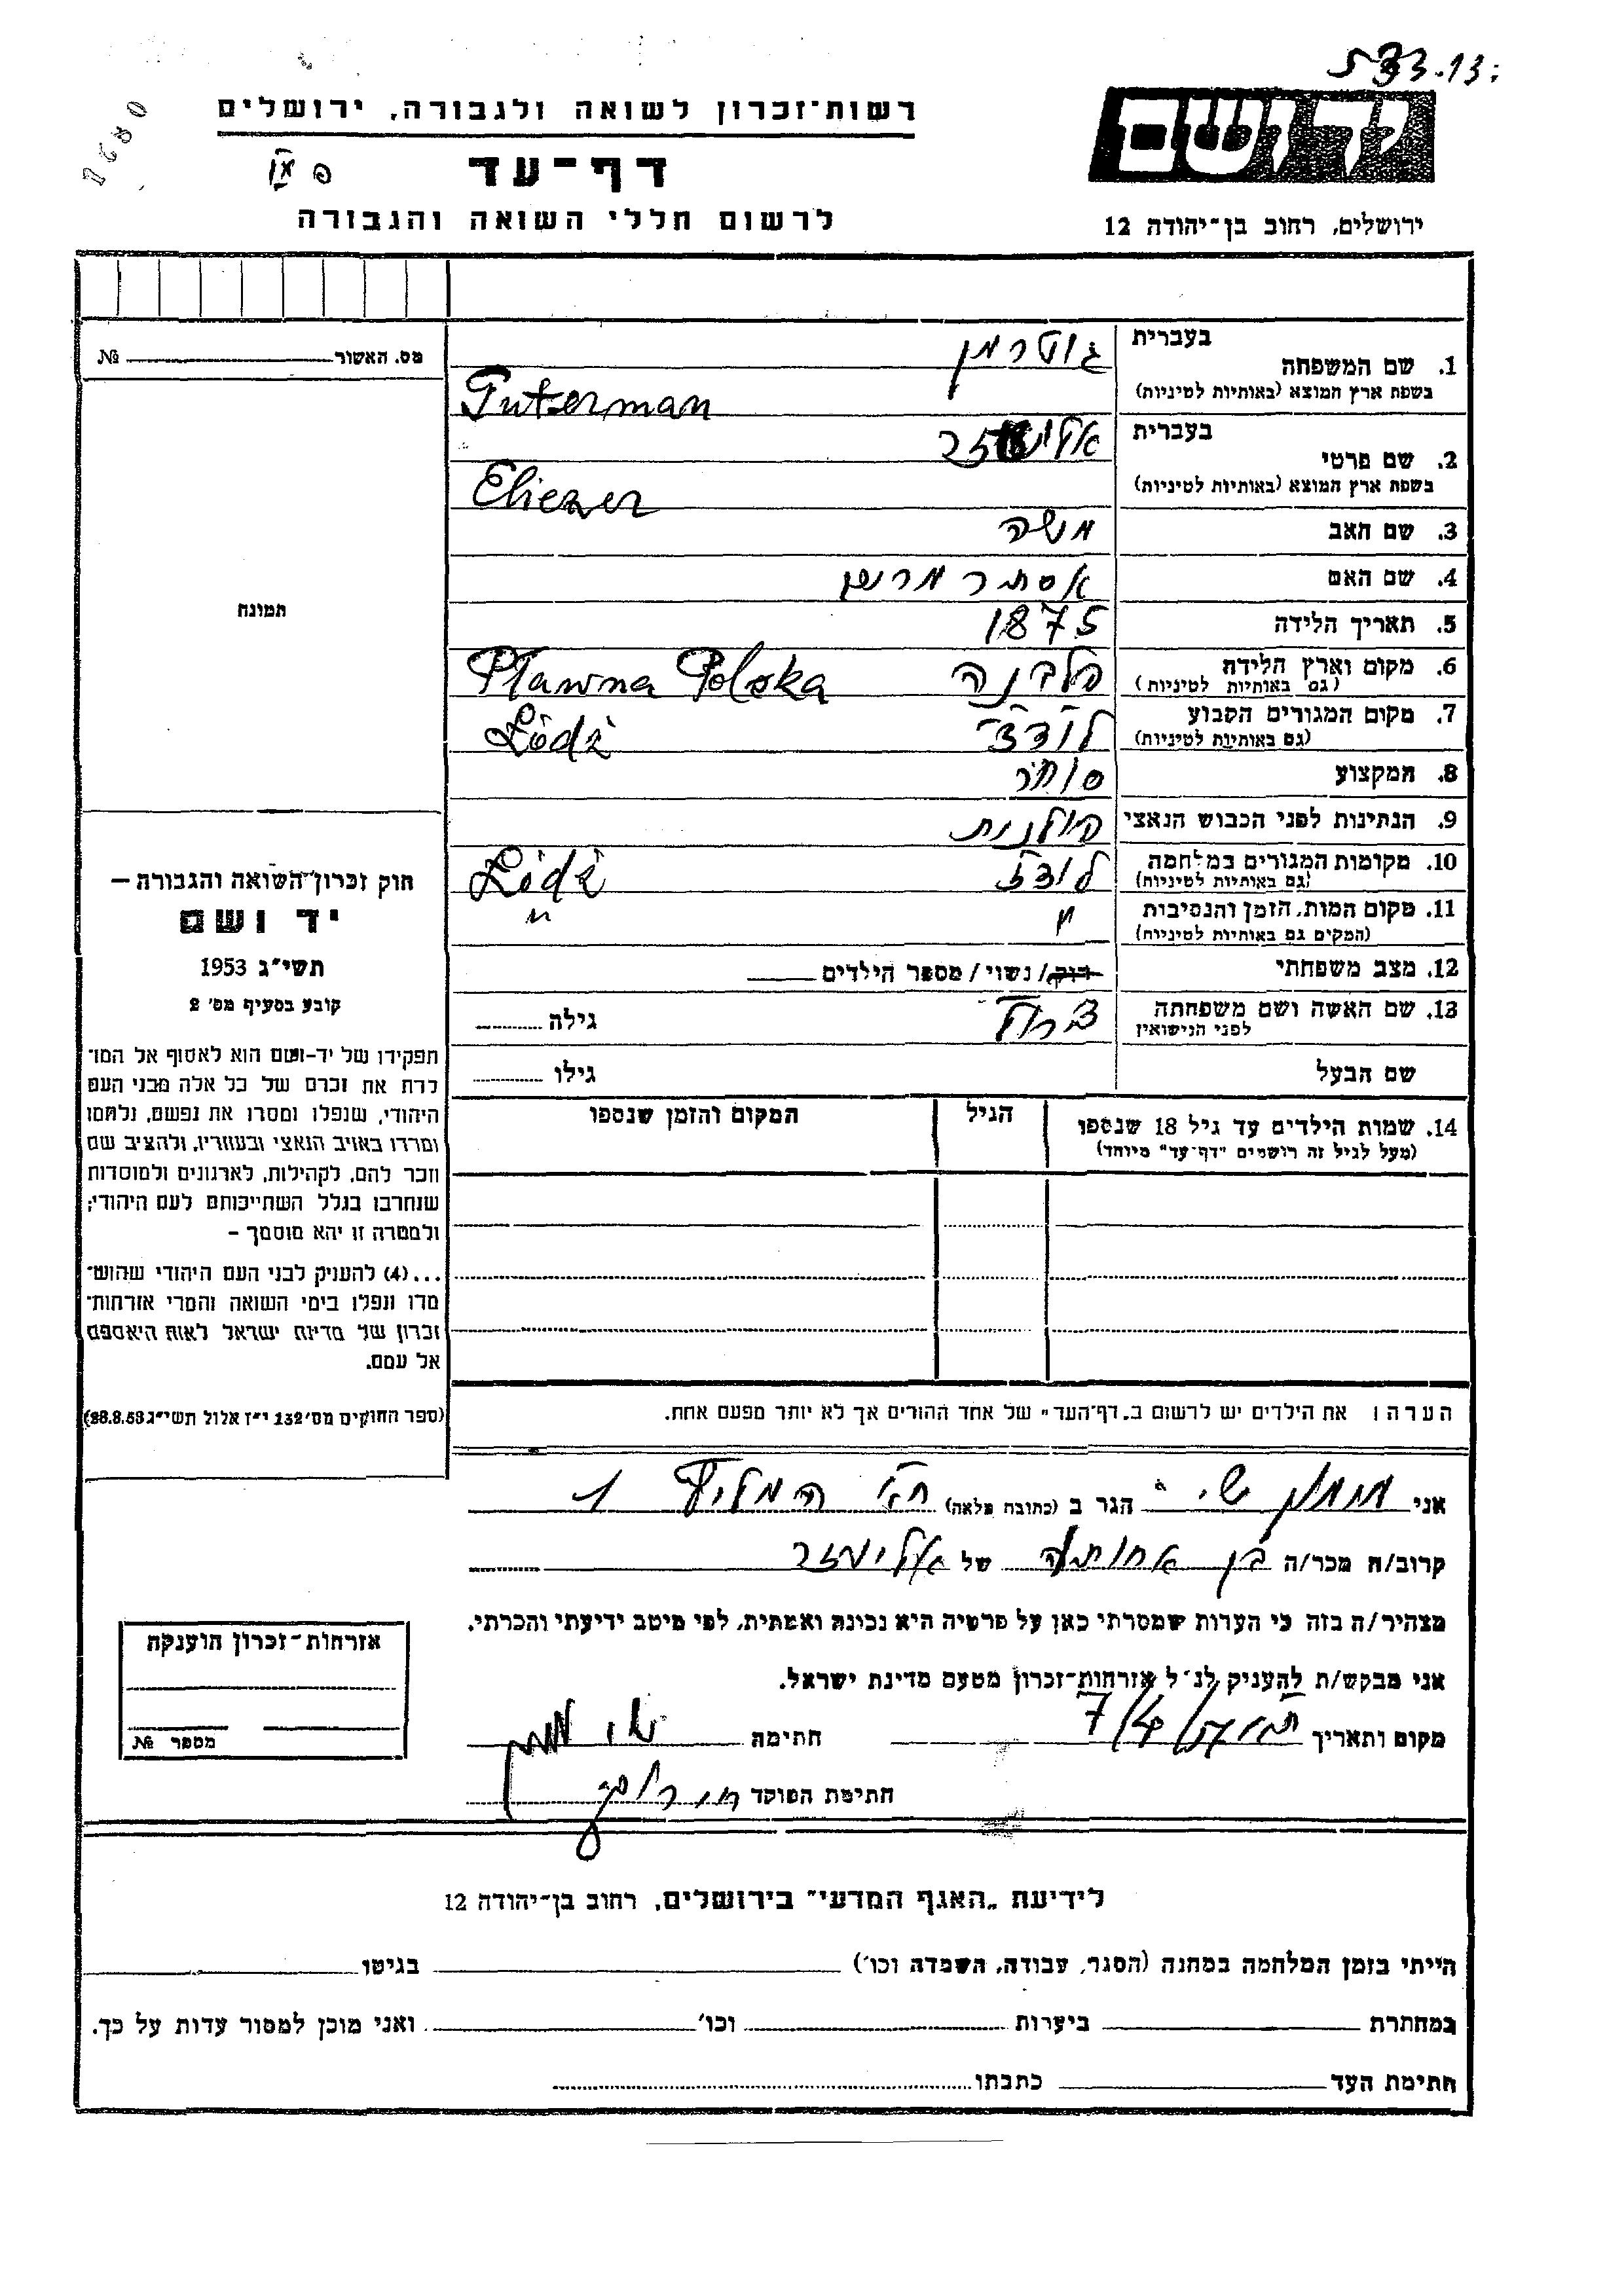 533.13
רשות־זכרון לשואה ולגבורה, ירושלים
יד ושם
דף־עד
לרשום חללי השואה והגבורה
ירושלים, רחוב בן־יהודה 12
מס. האשור № 
תמונה
בעברית
1. שם המשפחה גוטרמן
בשפת ארץ המוצא (באותיות לטיניות) Guterman
בעברית
2. שם פרטי אליעזר
בשפת ארץ המוצא (באותיות לטיניות) Eliezer
3. שם האב משה
4. שם האם אסתר מרים
5. תאריך הלידה 1875
6. מקום וארץ הלידה פלבנה Pławna Polska
(גם באותיות לטיניות)
7. מקום המגורים הקבוע לודז' Łódź
(גם באותיות לטיניות)
8. המקצוע סוחר
9. הנתינות לפני הכבוש הנאצי פולנית
10. מקומות המגורים במלחמה לודז Łódź
(גם באותיות לטיניות)
11. מקום המות, הזמן והנסיבות " "
(המקום גם באותיות לטיניות)
12. מצב משפחתי רוק/ נשוי/ מספר הילדים
13. שם האשה ושם משפחתה גילה
לפני הנישואין
שם הבעל גילו
14. שמות הילדים עד גיל 18 שנספו הגיל המקום והזמן שנספו
(מעל לגיל זה רושמים "דף־עד" מיוחד)
חוק זכרון־השואה והגבורה –
יד ושם
תשי"ג 1953
קובע בסעיף מס' 2
תפקידו של יד-ושם הוא לאסוף אל המו־
לדת את זכרם של כל אלה מבני העם
היהודי, שנפלו ומסרו את נפשם, נלחמו
ומרדו באויב הנאצי ובעוזריו, ולהציב שם
וזכר להם, לקהילות, לארגונים ולמוסדות
שנחרבו בגלל השתייכותם לעם היהודי;
ולמטרה זו יהא מוסמך –
...(4) להעניק לבני העם היהודי שהוש־
מדו ונפלו בימי השואה והמרי אזרחות־
זכרון של מדינת ישראל לאות היאספם
אל עמם.
(ספר החוקים מס' 132 י"ז אלול תשי"ג 28.8.53)
הערה: את הילדים יש לרשום ב"דף־העד" של אחד ההורים אך לא יותר מפעם אחת.
אני הגר ב (כתובת מלאה) ת"א המליץ 1
קרוב/ה מכר/ה בן אחותה של אליעזר
מצהיר/ה בזה כי העדות שמסרתי כאן על פרטיה היא נכונה ואמתית, לפי מיטב ידיעתי והכרתי.
אני מבקש/ת להעניק לנ"ל אזרחות־זכרון מטעם מדינת ישראל.
מקום ותאריך חתימה
חתימת הפוקד
אזרחות־זכרון הוענקה
מספר №
לידיעת "האגף המדעי" בירושלים, רחוב בן־יהודה 12
הייתי בזמן המלחמה במחנה (הסגר, עבודה, השמדה וכו') בגיטו
במחתרת ביערות וכו' ואני מוכן למסור עדות על כך.
חתימת העד כתבתו